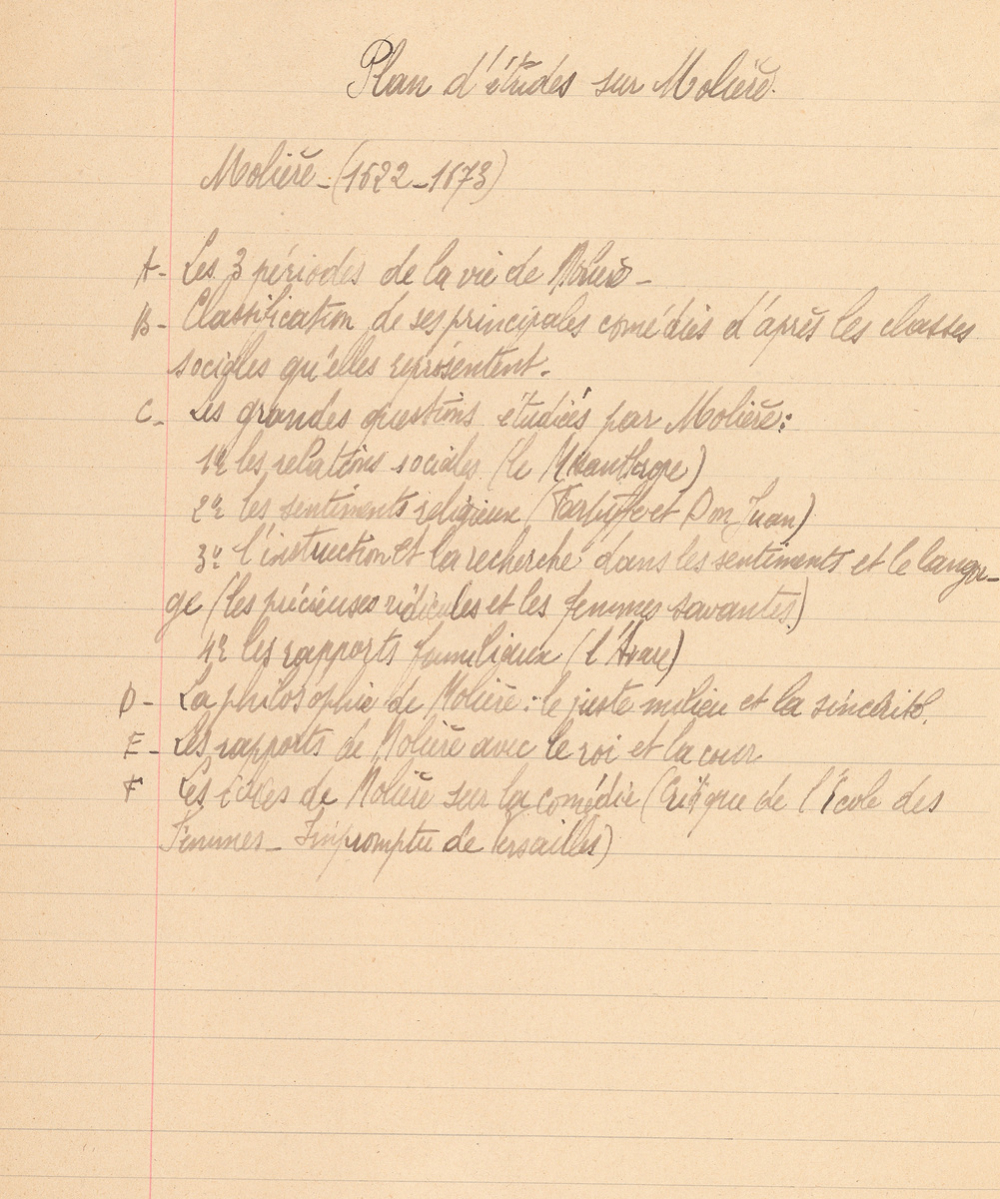 Plan d'études sur Molière.
Molière - (1622 - 1673)
A - Les 3 périodes de la vie de Molière -
B - Classification de ses principales comédies d'après les classes
sociales qu'elles représentent.
C - Les grandes questions étudiées par Molière :
1º les relations sociales (le Misanthrope)
2º les sentiments religieux (Tartuffe et Don Juan)
3º l'instruction et la recherche dans les sentiments et le langa-
ge (les précieuses ridicules et les femmes savantes)
4º les rapports familiaux (l'Avare)
D - La philosophie de Molière : le juste milieu et la sincérité.
E - Les rapports de Molière avec le roi et la cour
F Les idées de Molière sur la comédie (Critique de l'École des
Femmes - Impromptu de Versailles)